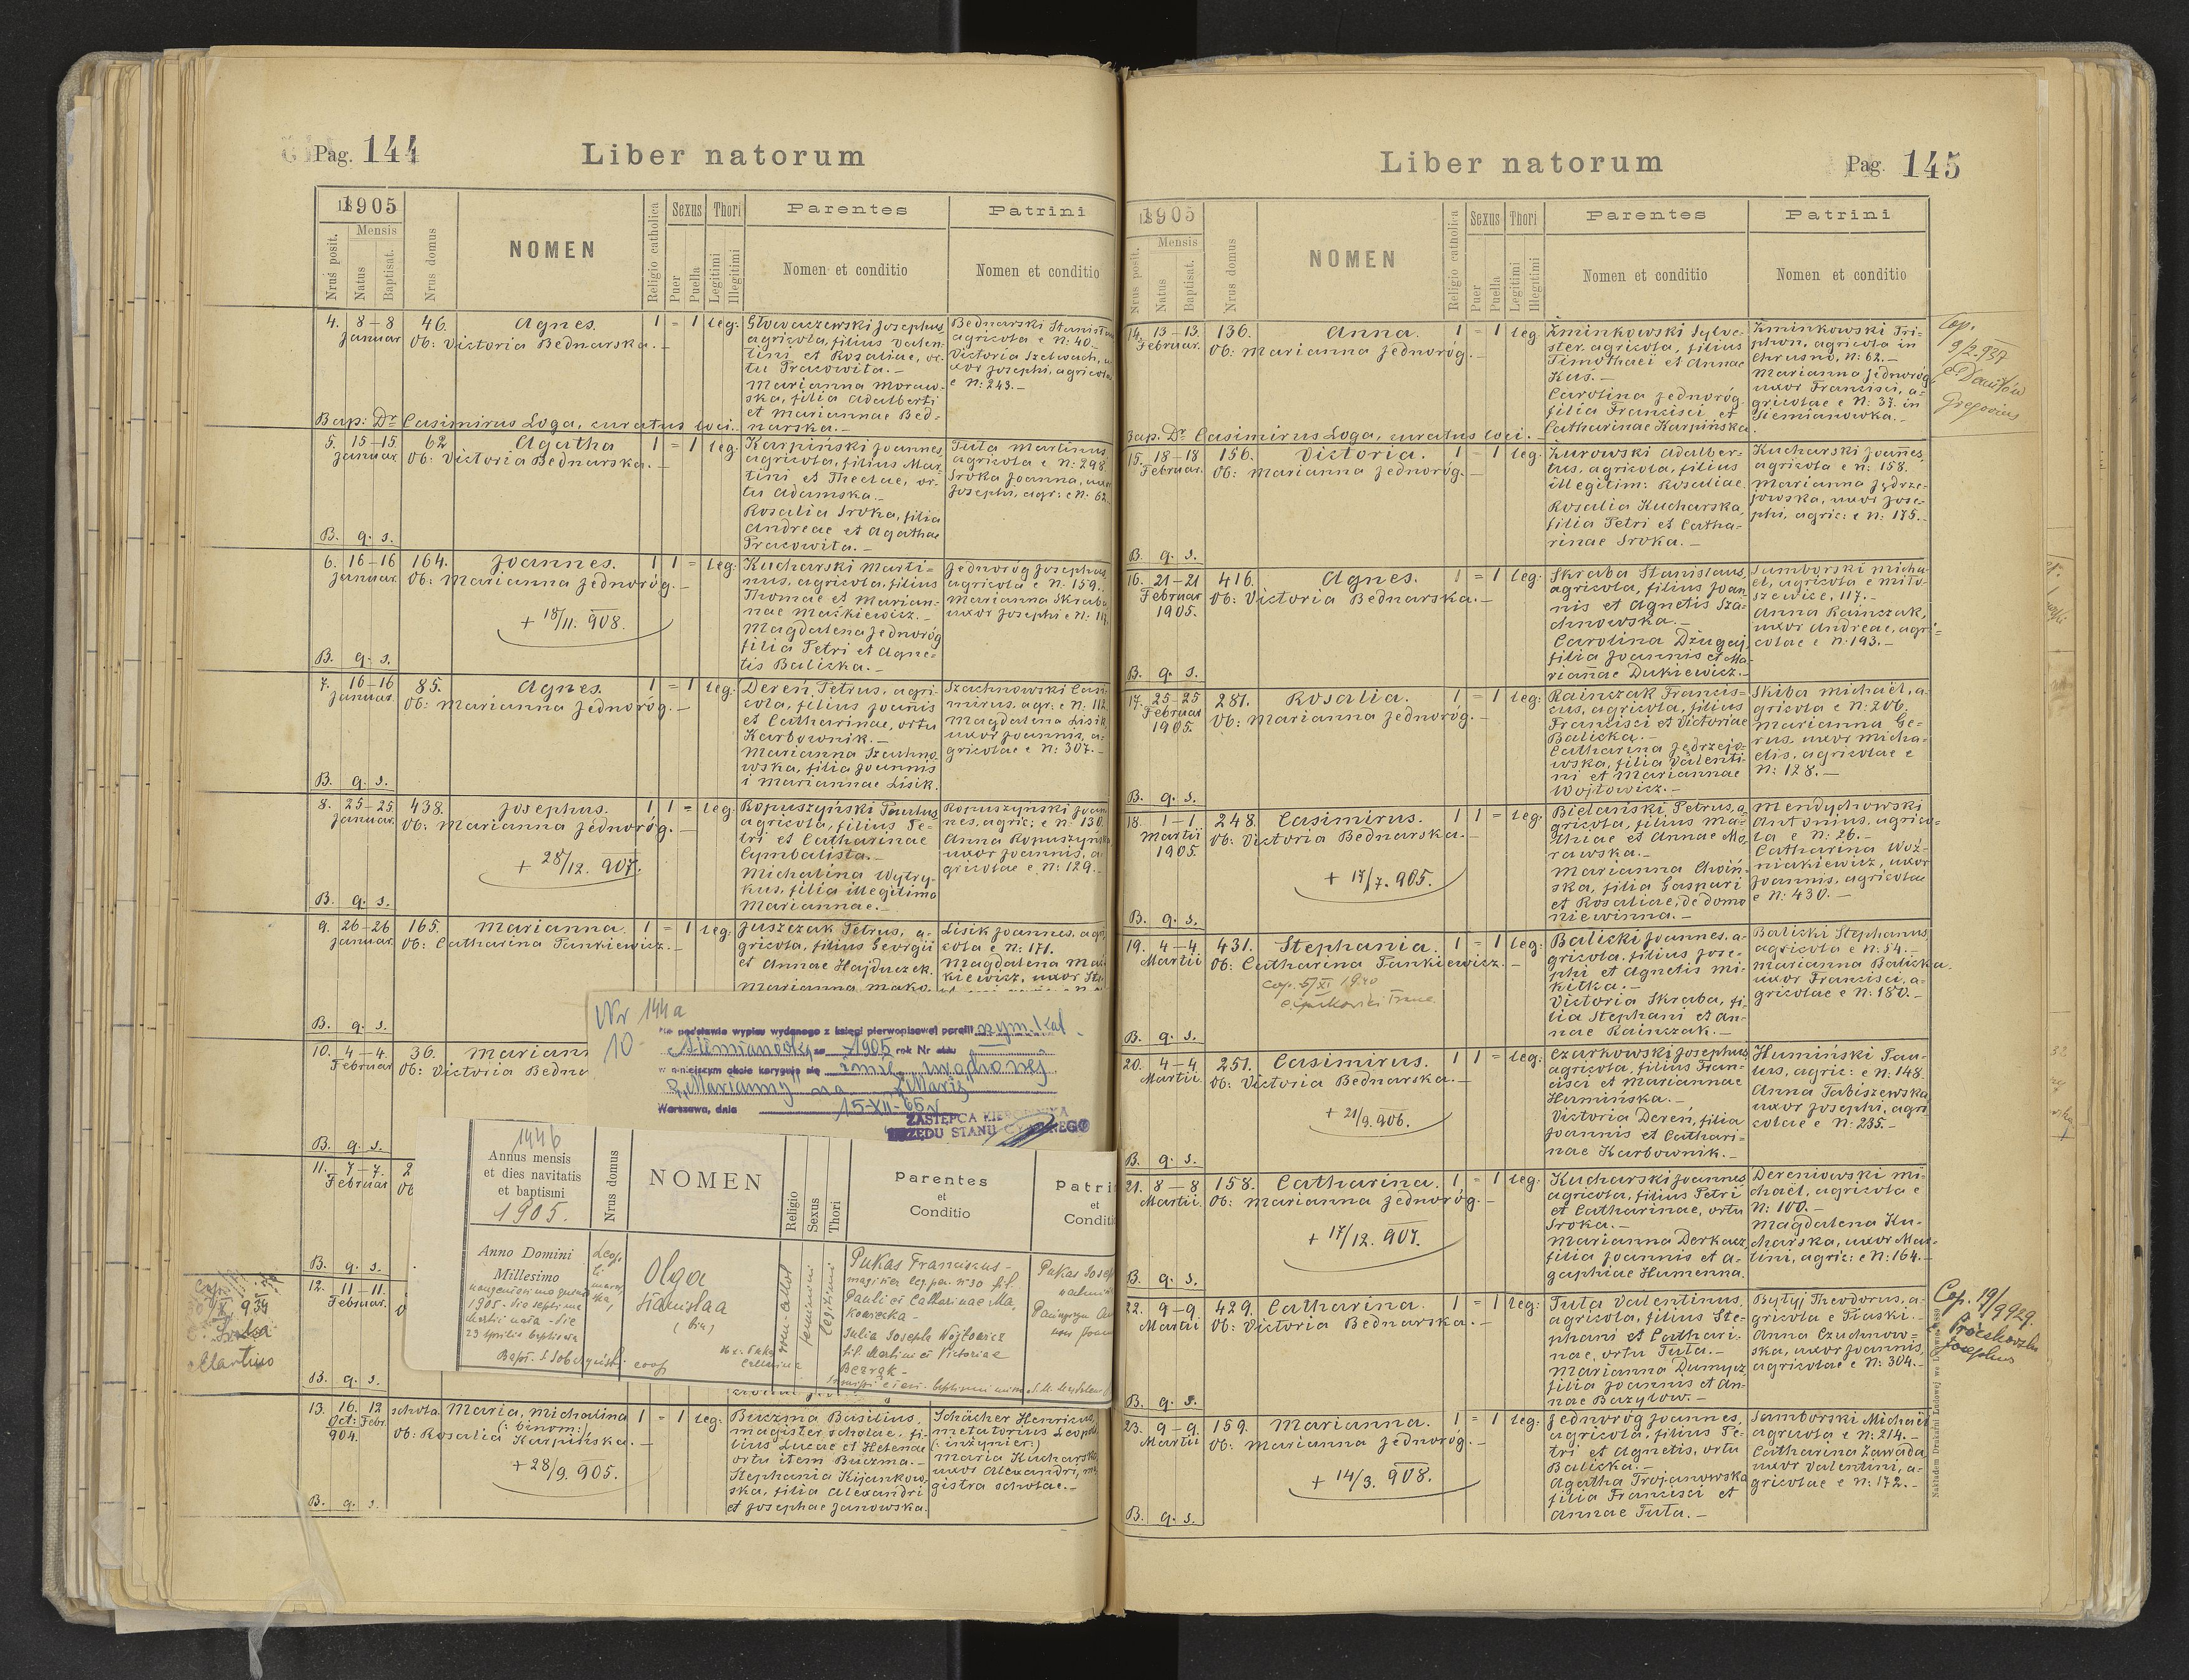 Pag. 144
Liber natorum
1905
Mensis
Nrus posit.
Natus
Baptisat.
Nrus domus
NOMEN
Religio catholica
Sexus
Puer
Puella
Thori
Legitimi
Illegitimi
Parentes
Nomen et conditio
Patrini
Nomen et conditio
4. 8-8 Januar. 46. Agnes. 1 = 1 leg.
Ob: Victoria Bednarska.
Głowaczewski Josephus,
agricola, filius Valen-
tini et Rosaliae, or-
tu Pracowita.-
Marianna Moraw-
ska, filia Adalberti
et Mariannae Bed-
narska.-
Bednarski Stanis
agricola e N: 40.-
Victoria Szelwach, u-
xor Josephi, agricolae
e N: 243.-
Bap: Dr Casimirus Loga, curatus loci.
5. 15-15 Januar. 62 Agatha 1 = 1 leg.
Ob: Victoria Bednarska.-
Karpiński Joannes,
agricola, filius Mar-
tini et Theclae, or-
tu Adamska.-
Rosalia Sroka, filia
Andreae et Agathae
Pracowita.-
Tuta Martinus
agricola e N: 298
Sroka Joanna, uxor
Josephi, agr: e N. 62
B. q. s.
6. 16-16 Januar. 164. Joannes. 1 1 = leg:
Ob: Marianna Jednoróg.-
+ 18/11. 908.
Kucharski Marti-
nus, agricola, filius
Thomae et Marian-
nae Maśkiewicz.-
Magdalena Jednoróg
filia Petri et Agne-
tis Balicka.-
Jednoróg Josephus
agricola e N: 159.
Marianna Skraba
uxor Josephi e N: 11
B. q. s.
7. 16-16 Januar. 85. Agnes. 1 = 1 leg:
Ob: Marianna Jednoróg.-
Dereń Petrus, agri-
cola, filius Joannis
et Catharinae, ortu
Karbownik.-
Marianna Szachno-
wska, filia Joannis
i Mariannae Lisik.
Szachnowski Casi-
mirus, agr: e N: 112
Magdalena Lisik
uxor Joannis, a-
gricolae e N: 307.-
B. q. s.
8. 25-25 Januar. 438. Josephus. 1 1 = leg:
Ob: Marianna Jednoróg.-
+ 28/12. 907.
Kopuszyński Paulus,
agricola, filius Pe-
tri et Catharinae
Cymbalista.-
Michalina Wytry-
kus, filia illegitima
Mariannae.-
Kopuszynski Joan
nes, agric: e N: 130.
Anna Kopuszyńska
uxor Joannis, a-
gricolae e N: 129.-
B. q. s.
9. 26-26 Januar. 165. Marianna. 1 = 1 leg:
Ob: Catharina Pankiewicz.-
Juszczak Petrus, a-
gricola, filius Georgii
et Annae Hajduczek.
Marianna Mako
Lisik Joannes, agr
cola e N: 171.
Magdalena Mac
kiewicz, uxor Ste
B. q. s.
10. 4-4. Februar. 36. Mariann
Ob: Victoria Bedna
B. q. s.
Nr 144a
10
Na podstawie wypisu wydanego z księgi pierwopisowej parafii rzym. kat.
Siemianówka za 1905 rok Nr aktu
w niniejszym akcie koryguje się
"Marianny" na "Maria"
Warszawa, dnia 15-XII-65
ZASTĘPCA KIEROWNIKA
URZĘDU STANU CYWILNEGO
11. 7-7. Februar. 2
Ob
B. q. s.
144b
Annus mensis
et dies navitatis
et baptismi
1905.
Nrus domus
NOMEN
Religio
Sexus
Thori
Parentes
et
Conditio
Patri
et
Conditi
Anno Domini
Millesimo
nongentesimo quinto
1905. die septima
Martii nata - die
23 Aprilis baptisata
Olga
Stanisłaa
(bin)
rom-cathol
feminini
legitimi
Pukas Franciscus -
Pauli et Catharinae Ma-
Julia Josepha Wojtowicz
fil. Martini et Victoriae
Pukas Josep
12. 11-11 Februar.
B. q. s.
934
Martino
13. 16. Oct: 904. 12 Febr. schola. Maria, Michalina 1 = 1 leg:
(: binom:)
Ob: Rosalia Karpińska.-
+ 28/9. 905.
Buczma Basilius,
magister scholae, fi-
lius Lucae et Helenae
ortu item Buczma.-
Stephania Kijankow-
ska, filia Alexandri
et Josephae Janowska.
Schächer Henricus,
metatorius Leopol.
(: inżynier:)
Maria Kucharska
uxor Alexandri, ma
gistra scholae.-
B. q. s.
Liber natorum
Pag. 145
1905
Mensis
Nrus posit.
Natus
Baptisat.
Nrus domus
NOMEN
Religio catholica
Sexus
Puer
Puella
Thori
Legitimi
Illegitimi
Parentes
Nomen et conditio
Patrini
Nomen et conditio
14. 13-13. Februar. 136. Anna. 1 = 1 leg
Ob: Marianna Jednoróg.-
Żminkowski Sylve-
ster, agricola, filius
Timothaei et Annae
Kuś.-
Carolina Jednoróg
filia Francisci et
Catharinae Karpińska
Żminkowski Tri-
phon, agricola in
Chrusno, N: 62.-
Marianna Jednoróg
uxor Francisci, a-
gricolae e N: 37. in
Siemianówka.-
Cop.
9/2.937
Gregorius
Bap. Dr Casimirus Loga, curatus loci.-
15. 18-18 Februar. 156. Victoria. 1 = 1 leg:
Ob: Marianna Jednoróg.-
Żurowski Adalber-
tus, agricola, filius
illegitim: Rosaliae.
Rosalia Kucharska,
filia Petri et Catha-
rinae Sroka.-
Kucharski Joannes,
agricola e N: 158.
Marianna Jędrze-
jowska, uxor Jose-
phi, agric: e N: 175.-
B. q. s.
16. 21-21 Februar 1905. 416. Agnes. 1 = 1 leg:
Ob: Victoria Bednarska.-
Skraba Stanislaus,
agricola, filius Joan
nis et Agnetis Sza-
chnowska.-
Carolina Dżugaj,
filia Joannis et Ma-
riannae Dukiewicz.-
Samborski Micha-
el, agricola e Miło-
szewice, 117.-
Anna Rainczak,
uxor Andreae, agri-
colae e N: 193.-
B. q. s.
17. 25-25 Februar 1905. 281. Rosalia. 1 = 1 leg:
Ob: Marianna Jednoróg.-
Rainczak Francis-
cus, agricola, filius
Francisci et Victoriae
Balicka.-
Catharina Jędrzejo-
wska, filia Valenti-
ni et Mariannae
Wojtowicz.-
Skiba Michaël, a-
gricola e N: 206.
Marianna Ge-
rus, uxor Micha-
elis, agricolae e
N: 128.-
B. q. s.
18. 1-1 Martii 1905. 248. Casimirus. 1 1 = leg:
Ob: Victoria Bednarska.-
+ 17/7. 905.
Bielański Petrus, a
gricola, filius Ma-
thiae et Annae Mo-
rawska.-
Marianna Choiń-
ska, filia Gaspari
et Rosaliae, de domo
niewinna.-
Mendychowski
Antonius, agrico-
la e N: 26.-
Catharina Woź-
niakiewicz, uxor
Joannis, agricolae
e N: 430.-
B. q. s.
19. 4-4 Martii 431. Stephania. 1 = 1 leg:
Ob: Catharina Pankiewicz.-
cop. 5/XI 1940
Balicki Joannes, a-
gricola, filius Jose-
phi et Agnetis Mi-
kitka.-
Victoria Skraba, fi-
lia Stephani et An-
nae Rainczak.-
Balicki Stephanus
agricola e N: 54.-
Marianna Balicka.
uxor Francisci, a-
gricolae e N: 180.-
B. q. s.
20. 4-4 Martii. 251. Casimirus. 1 1 = leg:
Ob: Victoria Bednarska.-
+ 21/9. 906.
Czarkowski Josephus
agricola, filius Fran-
cisci et Mariannae
Humińska.-
Victoria Dereń, filia
Joannis et Cathari-
nae Karbownik.-
Humiński Pau-
lus, agric: e N: 148
Anna Tabiszewska,
uxor Josephi, agri
colae e N: 235.-
B. q. s.
21. 8-8 Martii. 158. Catharina. 1 = 1 leg:
Ob: Marianna Jednoróg.-
+ 17/12. 907.
Kucharski Joannes
agricola, filius Petri
et Catharinae, ortu
Sroka.-
Marianna Derkacz,
filia Joannis et A-
gaphiae Humenna.
Dereniowski Mi-
chaël, agricola e
N: 100.-
Magdalena Ku-
charska, uxor Mar-
tini, agric: e N: 164.-
B. q. s.
22. 9-9 Martii 429. Catharina. 1 = 1 leg:
Ob: Victoria Bednarska.-
Tuta Valentinus,
agricola, filius Ste-
phani et Cathari-
nae, ortu Tuta.-
Marianna Dumycz
filia Joannis et An-
nae Bazylow.-
Bytyj Theodorus, a-
gricola e Piaski.-
Anna Czuchnow-
ska, uxor Joannis,
agricolae e N: 304.-
Cop. 19/9 929.
Josephus
B. q. s.
23. 9-9. Martii 159. Marianna. 1 = 1 leg:
Ob: Marianna Jednoróg.-
+ 14/3. 908.
Jednoróg Joannes,
agricola, filius Pe-
tri et Agnetis, ortu
Balicka.-
Agatha Trojanowska
filia Francisci et
Annae Tuta.-
Samborski Michaël
agricola e N: 214.-
Catharina Zawada,
uxor Valentini, a-
gricolae e N: 172.-
B. q. s.
Nakładem Drukarni Ludowej we Lwowie